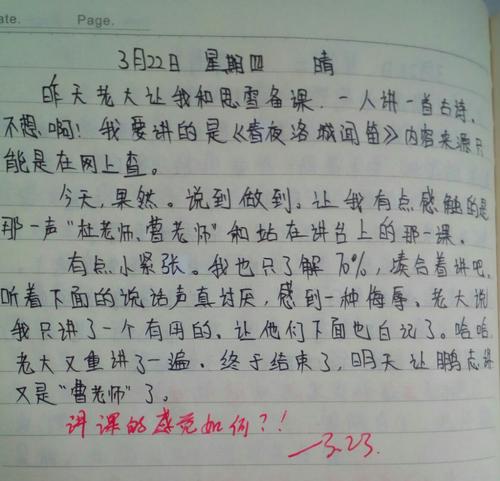 ate. Page.
3月22日 星期四 晴
昨天老大让我和思雪备课.一人讲一首古诗,
不想啊!我要讲的是《春夜洛城闻笛》内容来源只
能是在网上查。
今天,果然。说到做到.让我有点感触的是
那一声"杜老师、曹老师"和站在讲台上的那一课.
有点小紧张。我也只了解70%,凑合着讲吧.
听着下面的说话声真讨厌,感到一种侮辱。老大说
我只讲了一个有用的.让他们下面也白记了。哈哈.
老大又重讲了一遍.终于结束了,明天让鹏志课
又是"曹老师"了。
讲课的感觉如何?!
3.23.